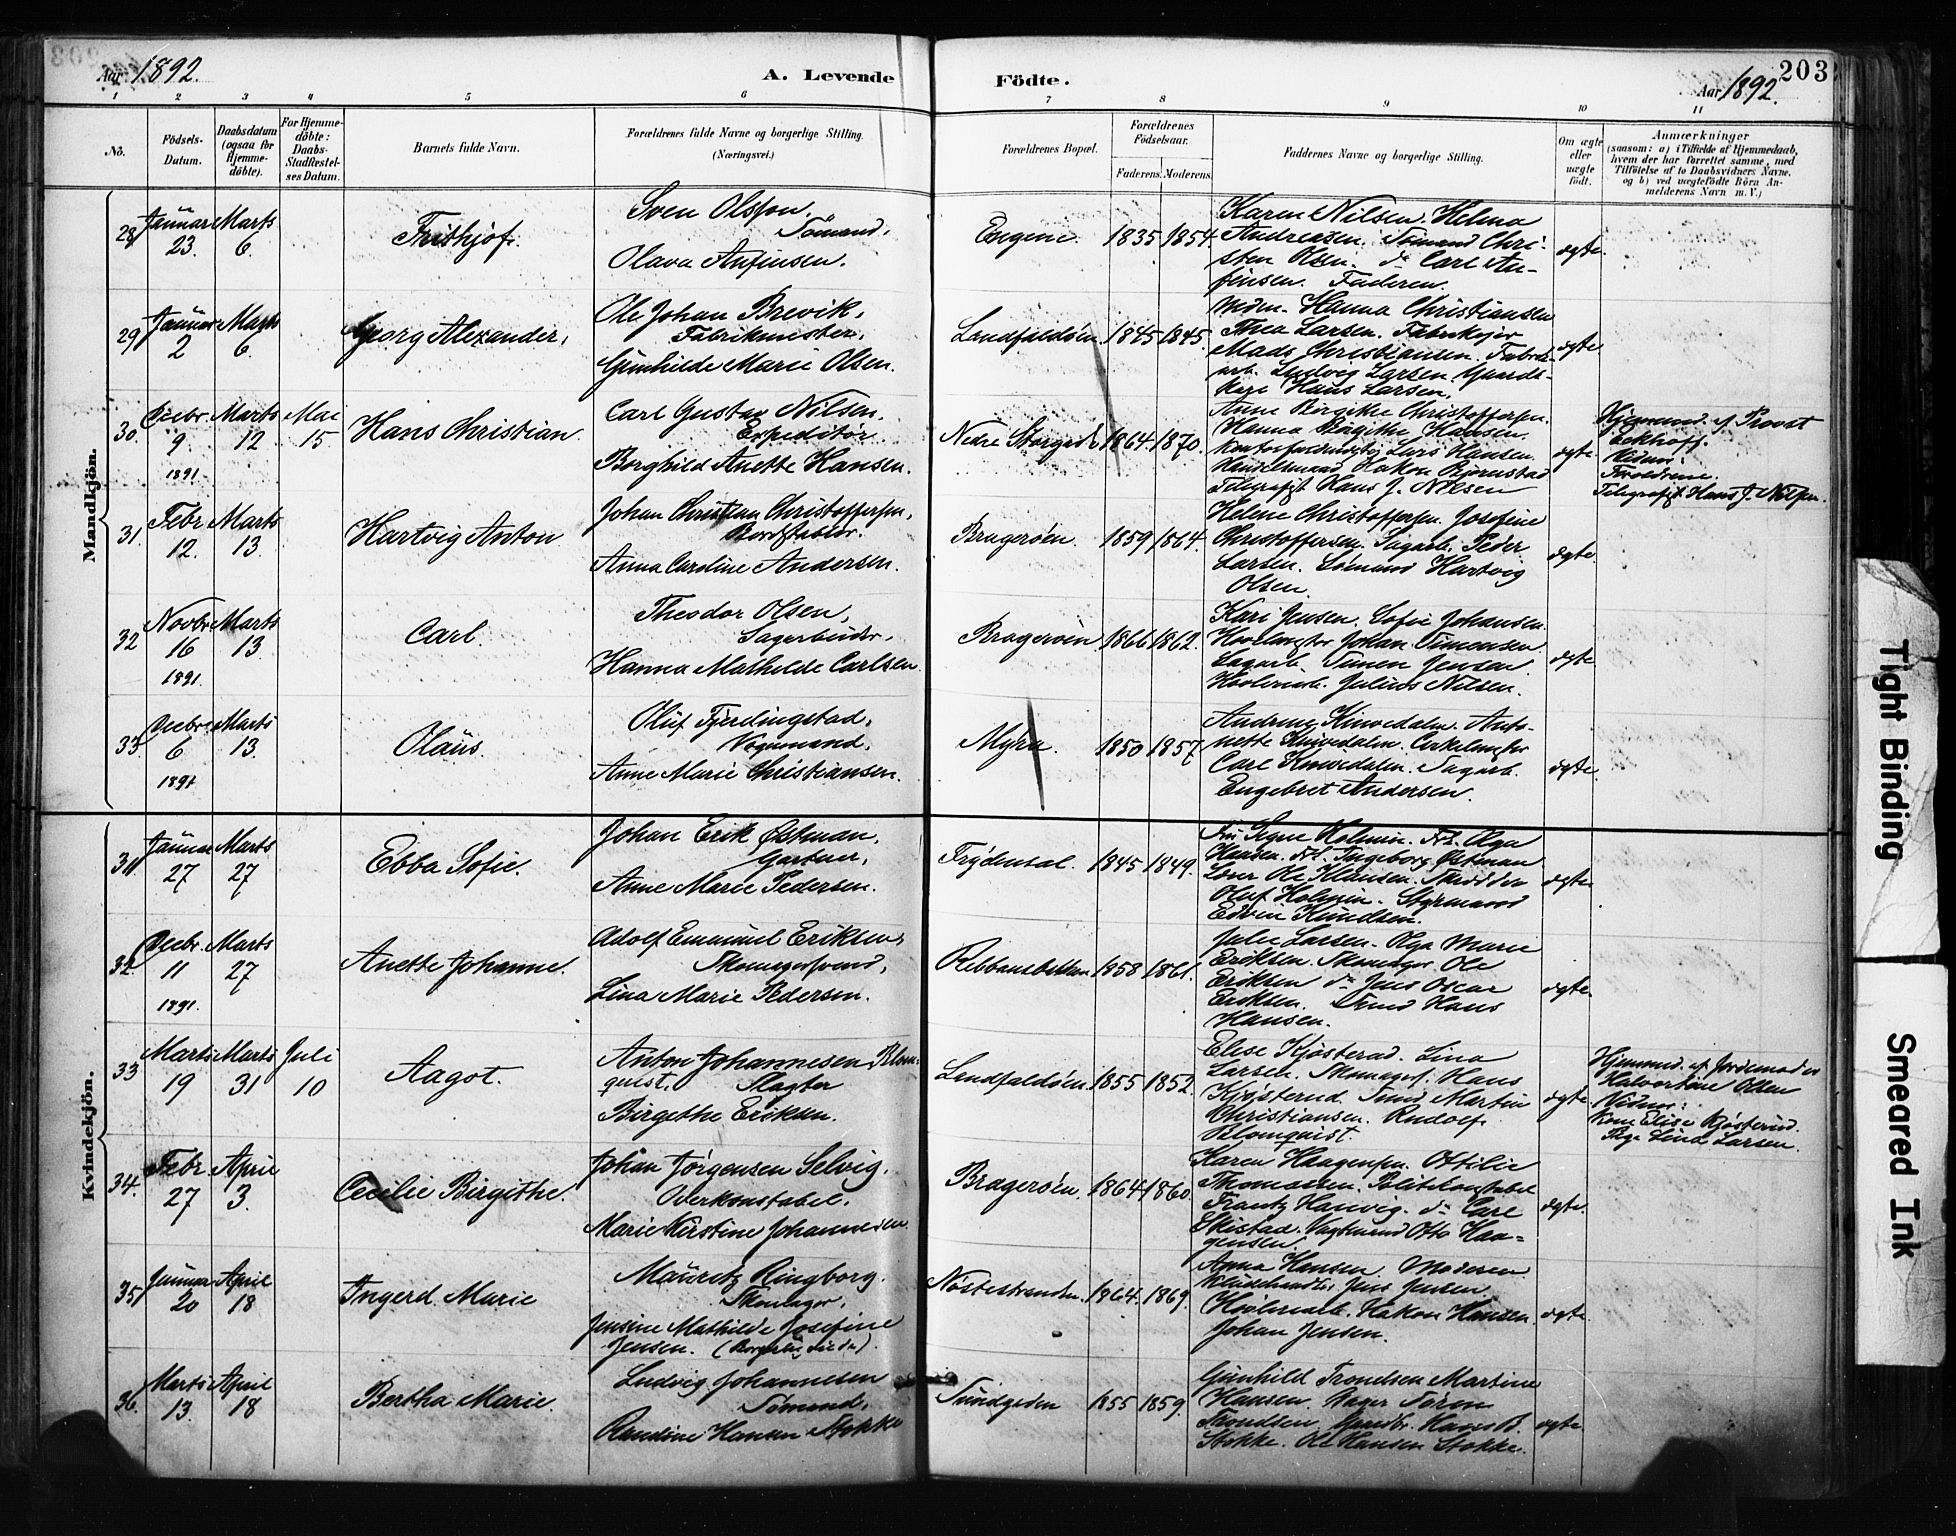 203
Aar 1892.
A. Levende Födte.
Aar 1892.
1 2 3 4 5 6 7 8 9 10 11
No.
Födsels-Datum.
Daabsdatum (ogsaa for Hjemme-döbte).
For Hjemme-döbte: Daabs-Stadfæstel-ses Datum.
Barnets fulde Navn.
Forældrenes fulde Navne og borgerlige Stilling. (Næringsvei.)
Forældrenes Bopæl.
Forældrenes Födselsaar.
Faderens. Moderens.
Faddernes Navne og borgerlige Stilling.
Om ægte eller uægte födt.
Anmærkninger
(saasom: a) i Tilfælde af Hjemmedaab,
hvem der har forrettet samme, med
Tilföielse af to Daabsvidners Navne,
og b) ved uægtefödte Börn An-
melderens Navn m. V.)
Mandkjön.
28 Januar 23. Marts 6.
Frithjof.
Sven Olsson,
Tømand,
Olava Anfinsen.
Engene. 1835 1854.
Karen Nilsen. Helma
Andreasen. Tømand Chri-
sten Olsen. do Carl An-
finsen. Faderen.
ægte.
29 Januar 2 Marts 6.
Georg Alexander,
Ole Johan Brevik,
Fabrikmester,
Gunhilde Marie Olsen.
Landfaldøen. 1845 1845.
Hanna Christiansen
Thea Larsen. Fabrikejer
Mads Christiansen. Fabrik-
arb. Ludvig Larsen. Gaards-
Hans Larsen.
ægte.
30. Decbr. 9 1891. Marts 12 Mai 15
Hans Christian.
Carl Gustav Nilsen,
Expeditør.
Borghild Anette Hansen.
Nedre Storgade 1864 1870.
Anne Birgitte Christoffersen.
Hanna Birgithe Hansen.
Lars Hansen.
Handelsmand Hakon Bjørnstad
Telegrafist Hans J. Nilsen
ægte.
Hjemmed. af Provst
Eckhoff.
Vidner:
Forældrene.
Telegrafist Hans J. Nilsen.
31. Febr. 12. Marts 13.
Hartvig Anton
Johan Christian Christoffersen,
Bordstabler.
Anna Caroline Andersen.
Bragerøen. 1859 1864.
Helene Christoffersen. Josefine
Christoffersen. Sagarb. Peder
Larsen. Sømand Hartvig
Olsen.
ægte
32 Novbr. 16 1891. Marts 13.
Carl.
Theodor Olsen,
Sagarbeider,
Hanna Mathilde Carlsen.
Bragerøen 1866 1862.
Kari Jensen. Sofie Johansen.
Johan Simensen.
Sagarb. Simen Jensen
Høvleriarb. Julius Nilsen.
ægte
33. Decbr. 6 1891 Marts 13.
Olaus.
Oluf Fjerdingstad,
Vognmand,
Anne Marie Christiansen.
Myra. 1850 1857.
Andrine Kinnedalen. Anto-
nette Kinnedalen.
Carl Kinnedalen. Sagarb.
Engebret Andersen.
ægte.
Kvindekjön.
31 Januar 27 Marts 27
Ebba Sofie.
Johan Erik Østman,
Gartner,
Anne Marie Pedersen.
Frydensal. 1845 1849.
Fru Signe Holmin. Frk. Olga
Hansen. Frk. Ingeborg Østman
Ole Hansen. Skrædder
Oluf Holmin. Styrmand
Edvin Knudsen.
ægte
32. Decbr. 11 1891. Marts 27
Anette Johanne.
Adolf Emanuel Eriksen,
Skomagersvend,
Lina Marie Pedersen.
Rebbansbakken 1858 1861.
Julie Larsen. Olga Marie
Eriksen. Skomager Ole
Eriksen do Jens Oscar
Eriksen. Svend Hans
Hansen.
ægte.
33 Marts 19 Marts 31 Juli 10
Aagot.
Anton Johannesen Blom-
quist. Slagter
Birgethe Eriksen.
Landfaldøen. 1855 1852.
Elise Kjøsterud. Lina
Larsen. Skomagersv. Hans
Kjøsterud. Svend Martin
Christiansen. Rudolf
Blomquist.
ægte
Hjemmed. af Jordemoder
Halvordine Olsen
Vidner:
Kone Elise Kjøsterud.
Pige Lina Larsen.
34. Febr. 27 April 3.
Cecilie Birgithe.
Johan Jørgensen Selvig,
Overkonstabel,
Marie Kirstine Johannesen.
Bragerøen. 1864 1860.
Karen Haagensen. Ottilie
Thomassen. Politikonstabel
Frantz Hauvig. do Carl
Skistad. Vagtmand Otto Haa-
gensen.
ægte.
35 Januar 20 April 18
Ingerd Marie
Mauritz Ringborg.
Skomager,
Jensine Mathilde Josefine
Jensen. (Borgerlig viede).
Nøstestranden. 1864. 1869.
Anna Hansen. Moderen.
Jens Jensen.
Høvleriarb. Hakon Hansen.
Johan Jensen.
ægte
36. Marts 13. April 18
Bertha Marie.
Ludvig Johannesen
Tømand,
Randine Hansen Stokke
Tundgaden 1855 1859.
Gunhild Trondsen Martine
Hansen. Bager Søren
Trondsen. Gaardbr. Hans B.
Stokke. Ole Hansen Stokke.
ægte.
Tight Binding
Smeared Ink